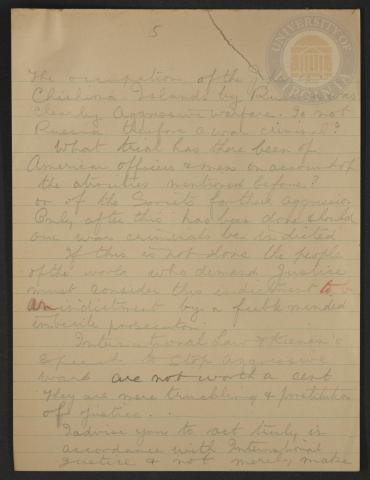 5
UNIVERSITY OF VIRGINIA
The occupation of the
Chishima Islands by Russia was
clearly Aggressive warfare. Is not
Russia therefore a war criminal?
What trial has there been of
American officers & men on account of
the atrocities mentioned before?
or of the Soviets for their aggression
Only after this has been done should
our war criminals be indicted.
If this is not done the people
of the world who demand Justice
must consider this indictment to be
an indictment by a feeble minded
imbecile prosecutor.
International Law &
to Stop Aggressive
wars are not worth a cent
They are mere truckling & prostitution
of justice.
I advise you to act truly in
accordance with International
Justice & not merely make